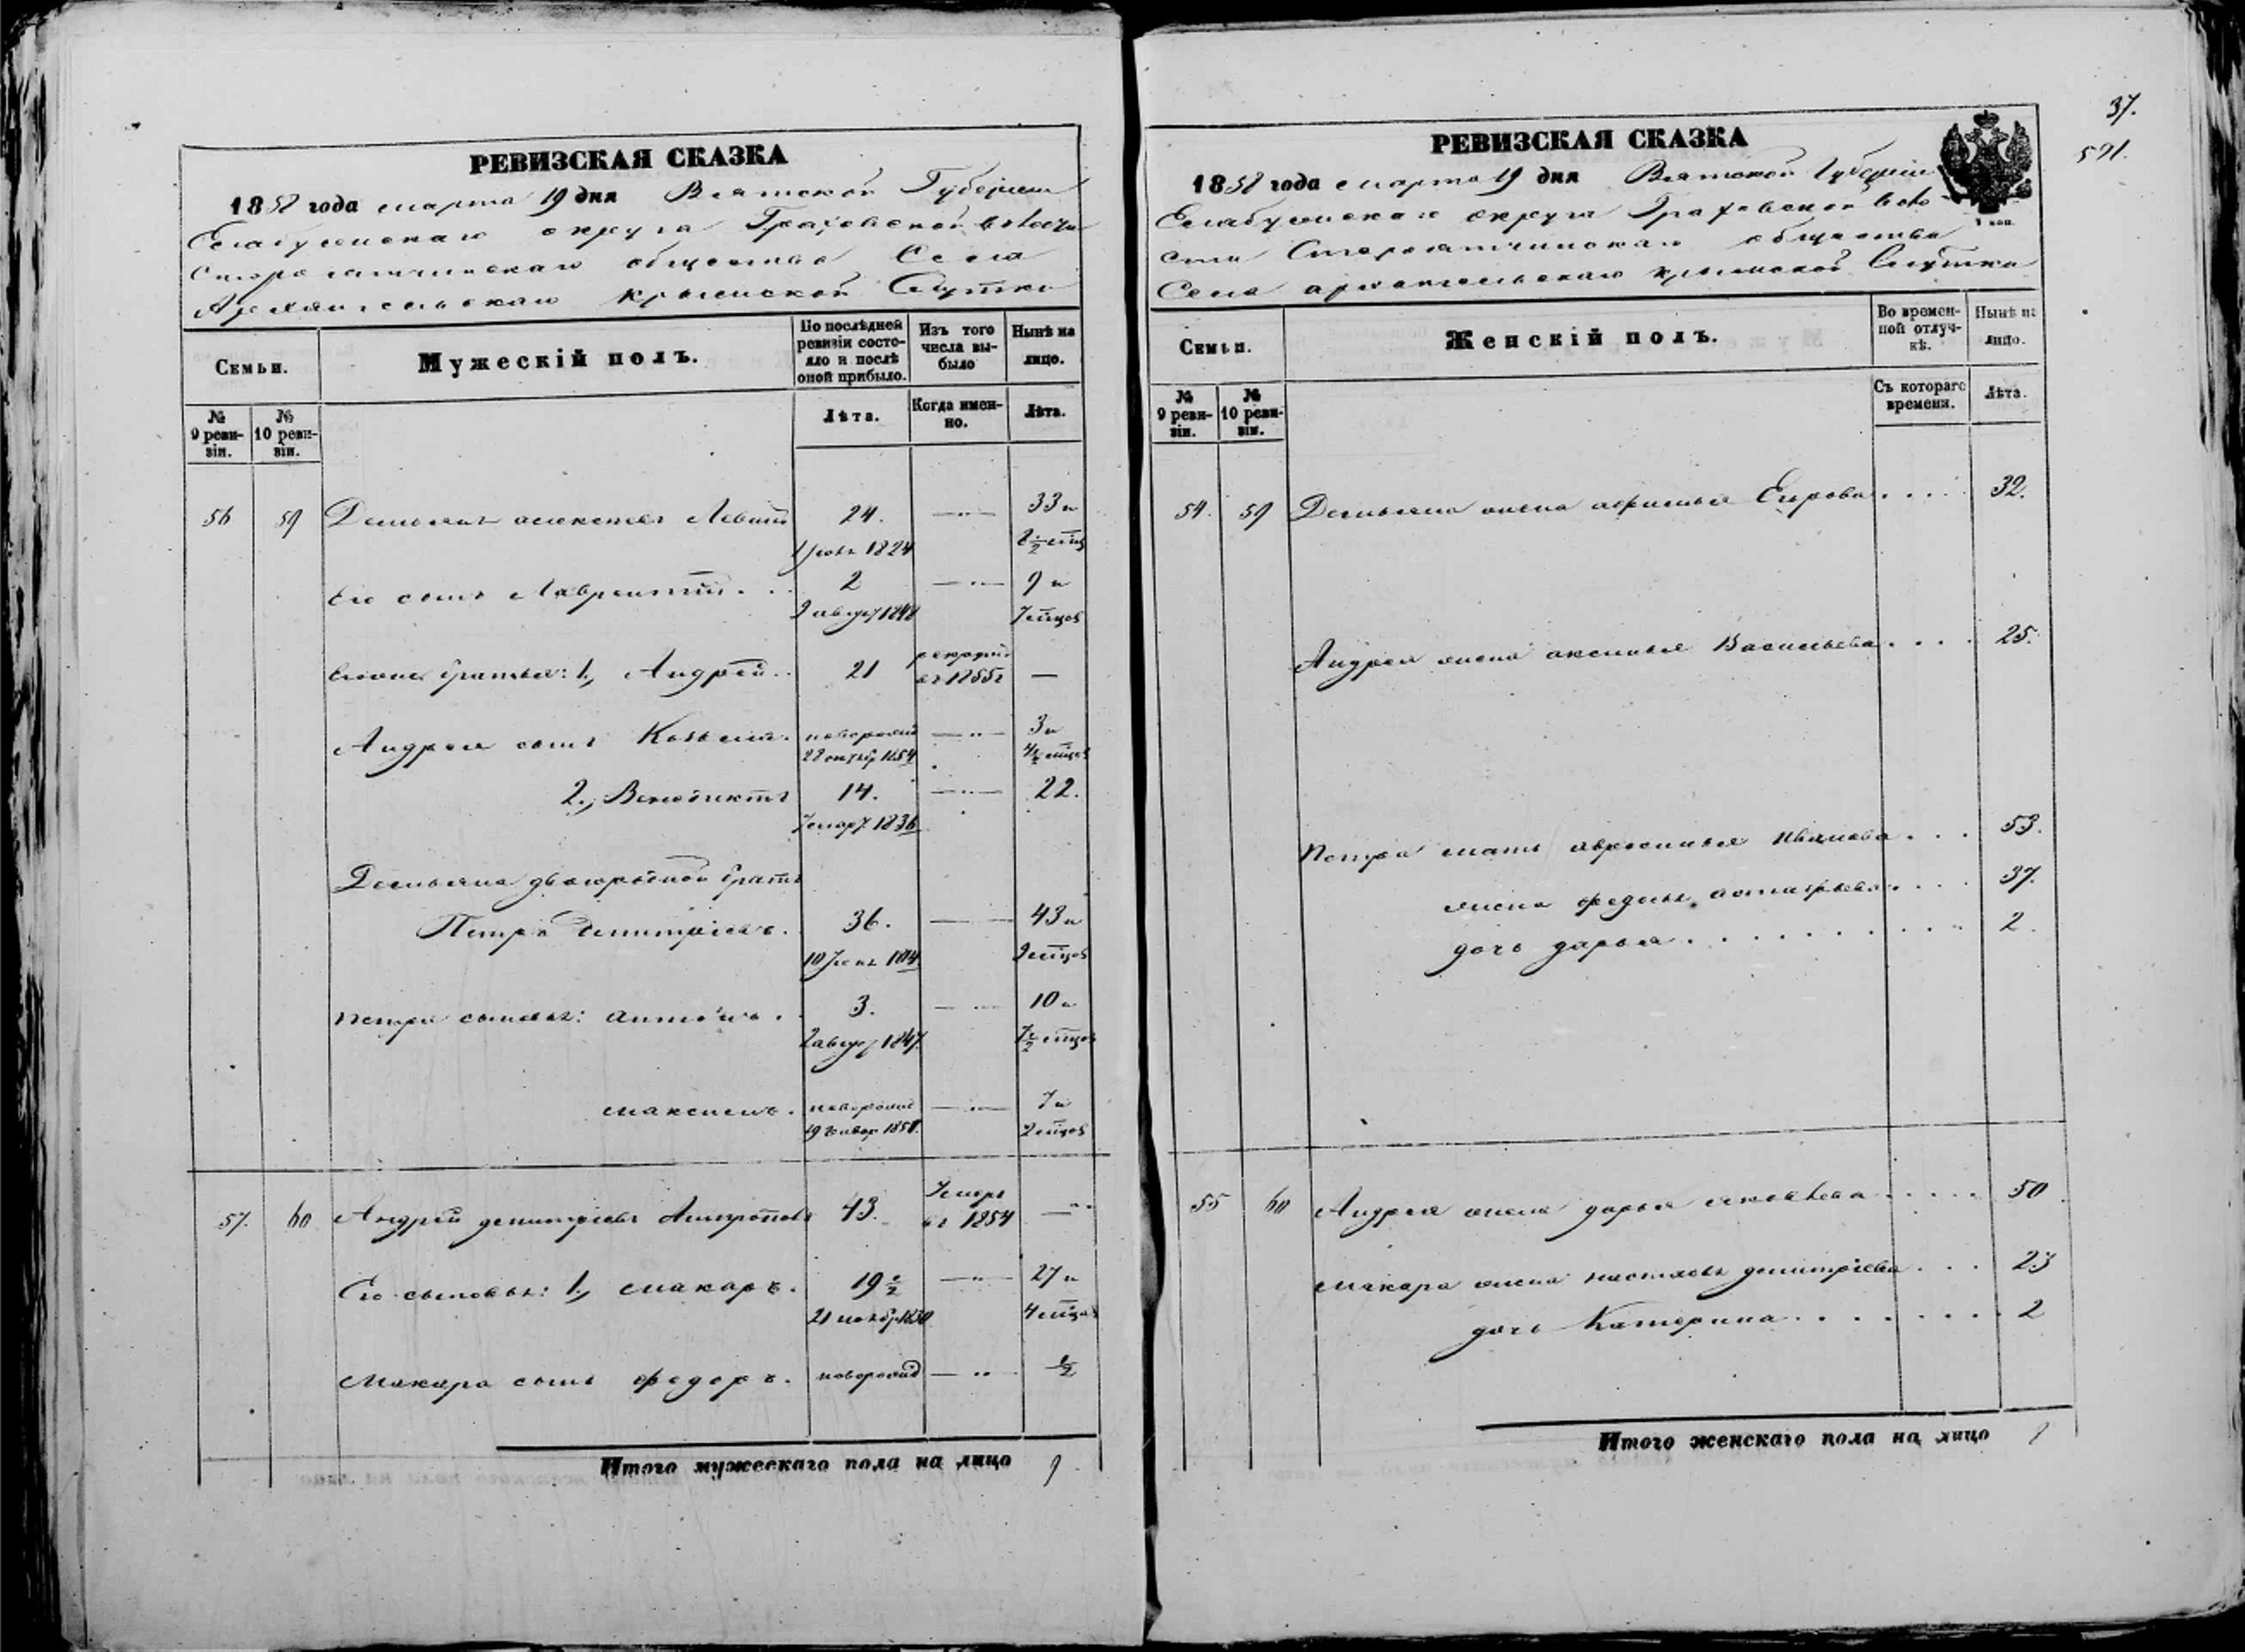 37.
591.
РЕВИЗСКАЯ СКАЗКА
1858 года марта 19 дня Вятской Губернии
Елабужскаго округа Граховской волости
общества Села
Архангельскаго Крымской Слутки
Семьи.
Мужескій полъ.
По послѣдней ревизіи состояло и послѣ оной прибыло.
Изъ того числа выбыло
Нынѣ на лицо.
№ 9 ревизіи.
№ 10 ревизіи.
Лѣта.
Когда именно.
Лѣта.
56 59 Демьянъ алексѣевъ 24. —"— 33 и
1824 8½
Его сынъ Лаврентій . . 2 —"— 9 и
9 август 1848 7 мцов
братья: 1, Андрей . . 21 —
въ 1855 г
Андрея сынъ Козьма . новорожд —"— 3 и
28 октяб 1854 4½ мцов
2., Венедиктъ 14. —"— 22.
7 март 1836
Демьяна двоюродной братъ
Петръ Дмитріевъ . 36. —"— 43 и
10 1814 9 мцов
Петра сыновья: антонъ . 3. —"— 10 и
2 август 1847. 7½ мцов
максимъ . новорожд —"— 7 и
19 Январ 1851. 2 мцов
57. 60 Андрей дмитріевъ 43. Умеръ —"
въ 1854
Его сыновья: 1., макаръ . 19½ —"— 27 и
21 ноябр 1830 4 мцов
Макара сынъ федоръ . новорожд —"— ½
Итого мужескаго пола на лицо 9.
РЕВИЗСКАЯ СКАЗКА
1858 года марта 19 дня Вятской Губерніи
Елабужскаго округа Граховской воло-
сти общества
Села архангельскаго крымской Слутки
Семьи.
Женскій полъ.
Во временной отлучкѣ.
Нынѣ на лицо.
№ 9 ревизіи.
№ 10 ревизіи.
Съ котораго времени.
Лѣта.
54. 59 Демьяна жена Егорова . . . . 32.
Андрея жена аксинья Васильева . . . . 25.
Петра мать афросинья Иванова . . . 53.
жена федосья . . . 37.
дочь дарья . . . . . . . . . . 2.
55 60 Андрея жена дарья . . . . . 50.
Макара жена настасья дмитріева . . . 23
дочь Катерина . . . . . . . . 2
Итого женскаго пола на лицо 8